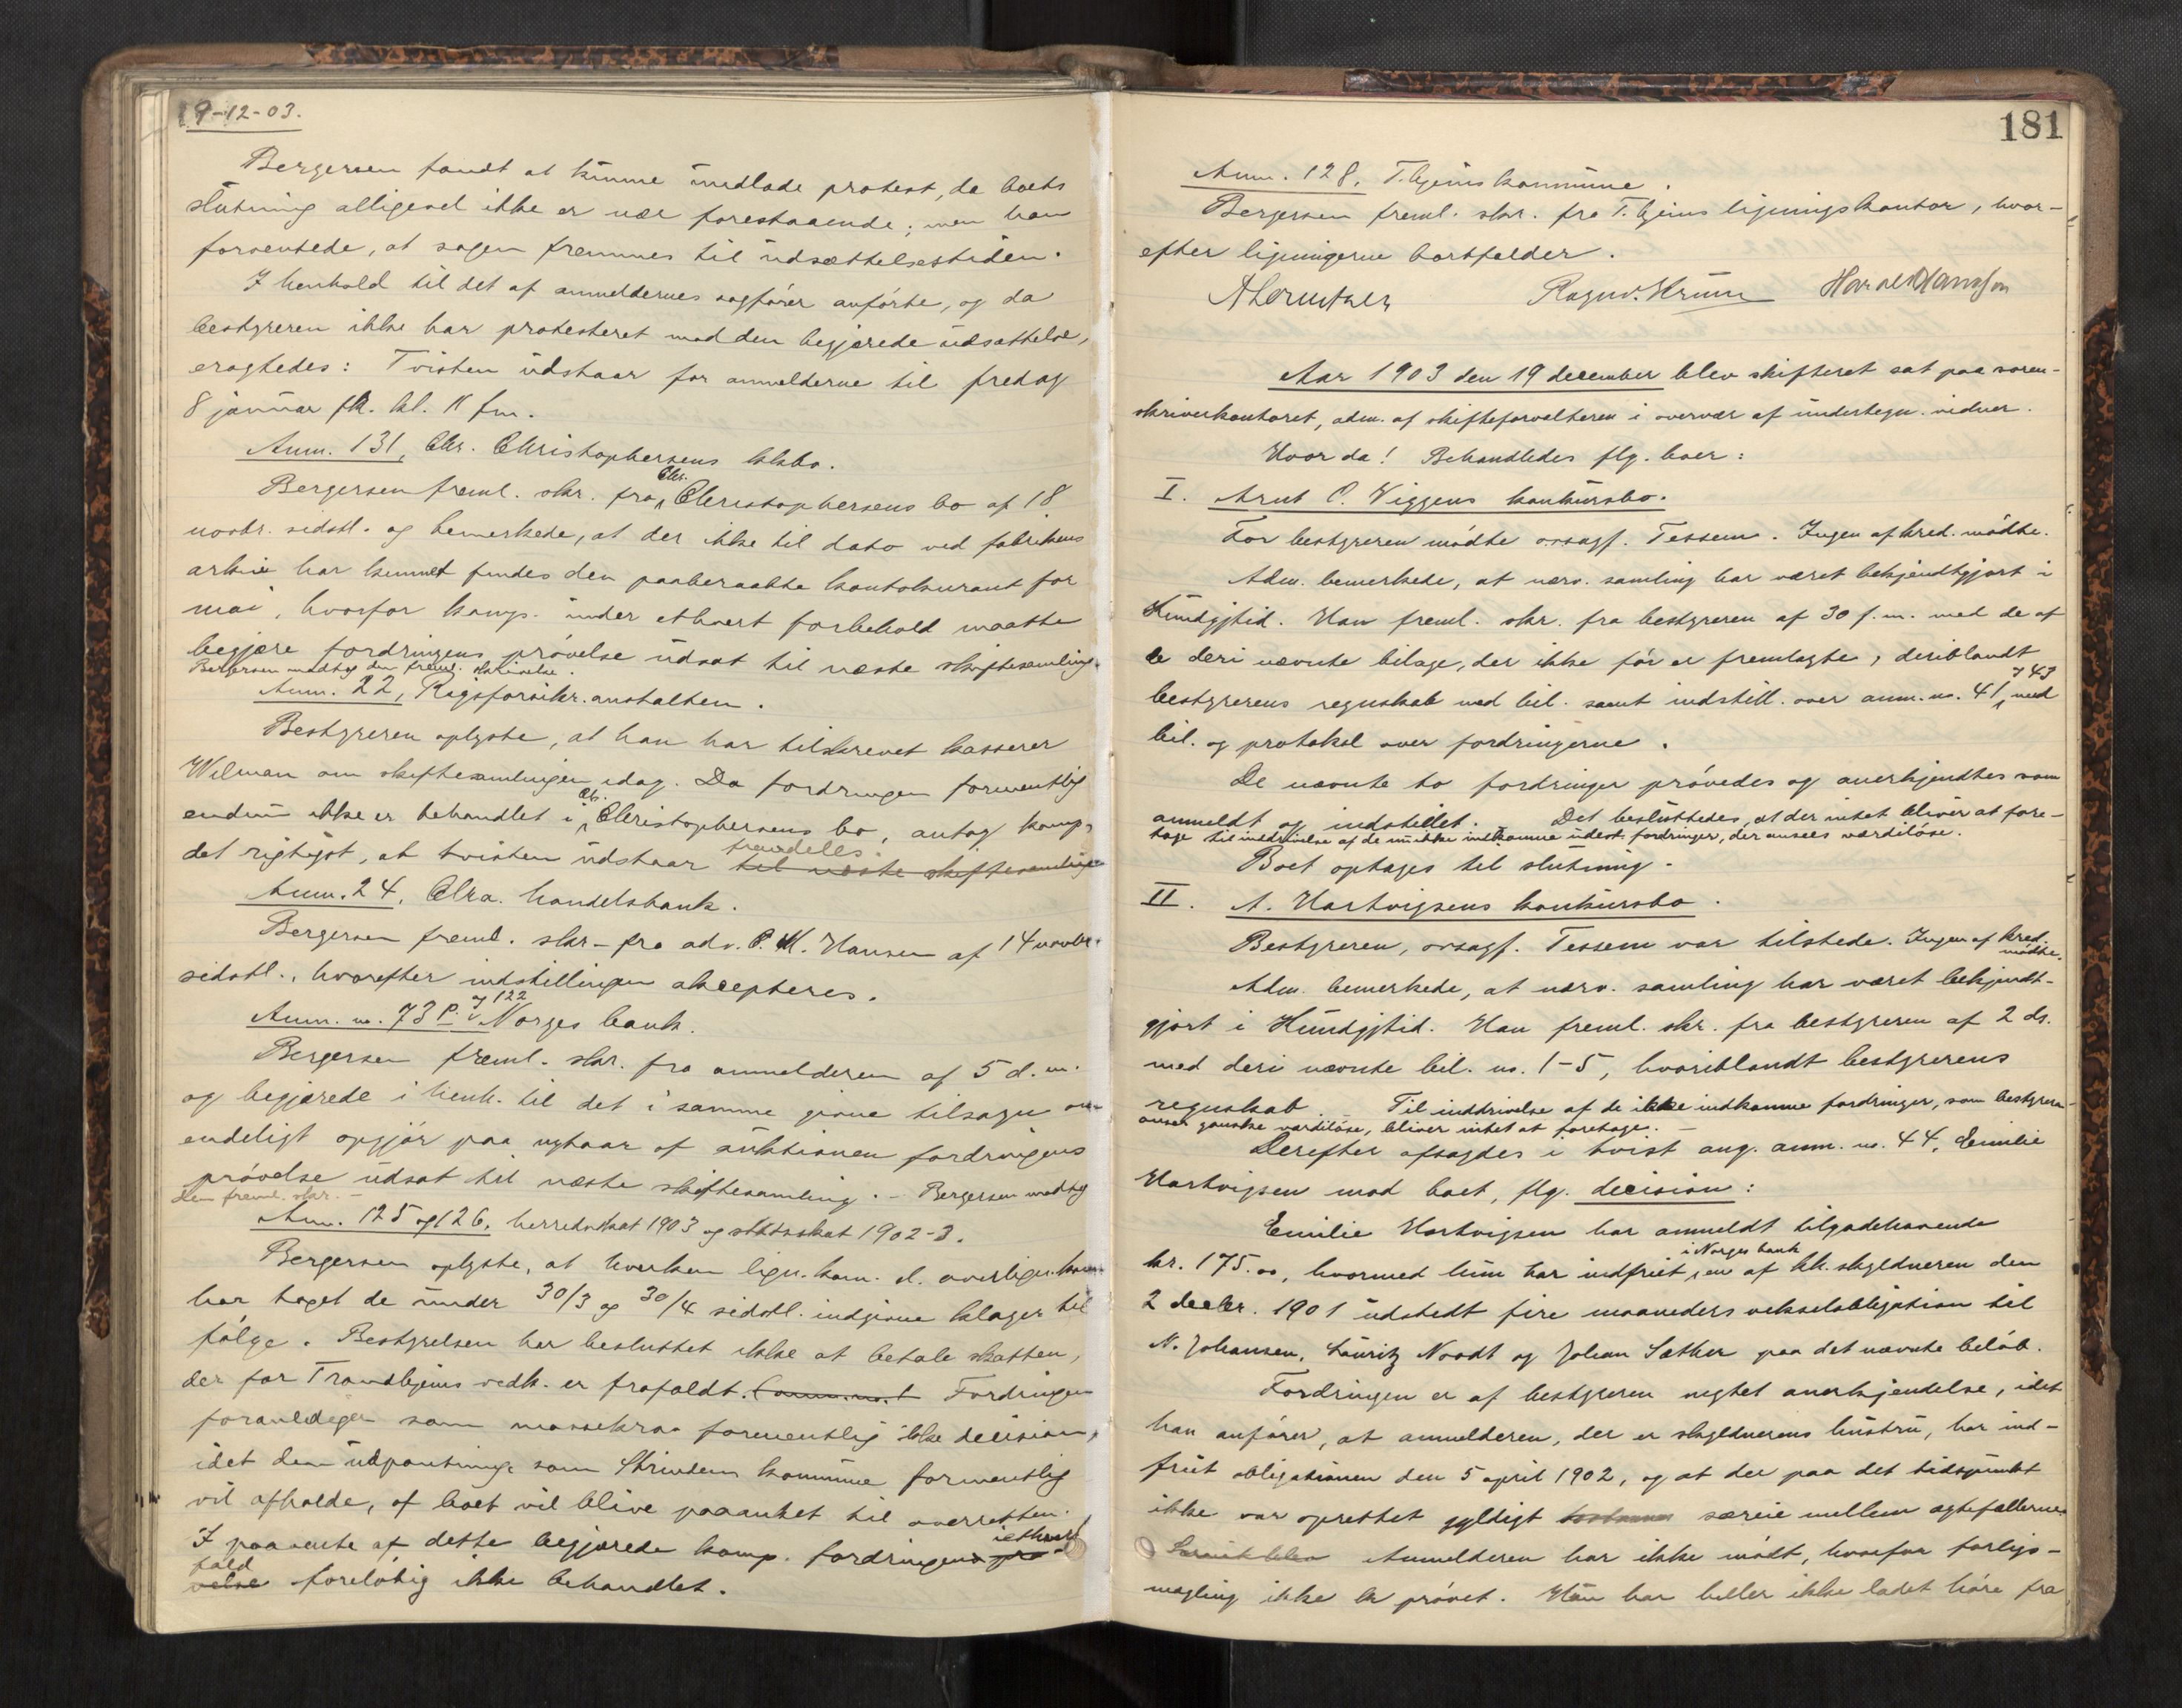 19-12-03.
Bergersen fandt at kunne undlade protest, da boets
slutning alligevel ikke er nær forestaaende; men han
forventede, at sagen fremmes til udsættelsestiden.
I henhold til det af anmeldernes sagfører anførte, og da
bestyreren ikke har protesteret mod den begjærede udsættelse,
eragtedes: Tvisten udstaar for anmelderne til fredag
8 januar fk. kl. 11 fm.
Anm. 131, Chr. Christophersens kkbo.
Bergersen freml. skr. fra Chr. Christophersens bo af 18
novbr. sidstl. og bemerkede, at der ikke til dato ved fabrikens
arkiv har kunnet findes den paaberaabte kontokurant for
mai, hvorfor komp. under ethvert forbehold maatte
begjære fordringens prøvelse udsat til næste skiftesamling.
Bergersen modtog den freml. skrivelse.
Anm. 22, Rigsforsikr.anstalten.
Bestyreren oplyste, at han har tilskrevet kasserer
Wilman om skiftesamlingen idag. Da fordringen formentlig
endnu ikke er behandlet i Chr. Christophersens bo, antog komp.
det rigtigst, at tvisten udstaar fremdeles. til næste skiftesamling
Anm. 24, Chra. handelsbank.
Bergersen freml. skr. fra adv. P. M. Hansen af 14 novbr.
sidstl., hvorefter indstillingen aksepteres.
Anm. no. 73 P. i og 122 Norges bank.
Bergersen freml. skr. fra anmelderen af 5 d.m.
og begjærede i henh. til det i samme givne tilsagn om
endeligt opgjør paa nyaar af auktionen fordringens
prøvelse udsat til næste skiftesamling. - Bergersen modtog
den freml. skr. -
Anm. 125 og 126, herredsskat 1903 og statsskat 1902-3.
Bergersen oplyste, at hverken lign.kom. el. overlign.kom.
har taget de under 30/3 og 30/4 sidstl. indgivne klager til
følge. Bestyrelsen har besluttet ikke at betale skatten,
der for Trondhjems vedk. er frafaldt. (anm. no. 1 Fordringen
foranlediger som massekrav formentlig ikke decision,
idet den udpantning, som Strindens kommune formentlig
vil afholde, af boet vil blive paaanket til overretten.
I paavente af dette begjærede komp. fordringen i ethvert
fald foreløbig ikke behandlet.
181
Anm. 128, T.hjems kommune.
Bergersen freml. skr. fra T.hjems ligningskontor, hvor-
efter ligningerne bortfalder.
Ragnv. Harald Hansson
Aar 1903 den 19 december blev skifteret sat paa soren-
skriverkontoret, adm. af skifteforvalteren i overvær af undertegn. vidner.
Hvor da! Behandledes flg. boer:
I. Arnt O. Viggens konkursbo.
For bestyreren mødte ovsagf. Tessem. Ingen af kred. mødte.
Adm. bemerkede, at nærv. samling har været bekjendtgjort i
Kundgjtid. Han freml. skr. fra bestyreren af 30 f.m. med de af
deri nævnte bilage, der ikke før er fremlagte, deriblandt
bestyrerens regnskab med bil. samt indstill. over anm. no. 41 og 43 med
bil. og protokol over fordringerne.
De nævnte to fordringer prøvedes og anerkjendtes som
anmeldt og indstillet. Det besluttedes, at der intet bliver at fore-
tage til inddrivelse af de nu ikke indkomne udest. fordringer, der ansees værdiløse.
Boet optages til slutning.
II. A. Hartvigsens konkursbo.
Bestyreren, ovsagf. Tessem var tilstede. Ingen af kred. mødte.
Adm. bemerkede, at nærv. samling har været bekjendt-
gjort i Kundgjtid. Han freml. skr. fra bestyreren af 2 ds.
med deri nævnte bil. no. 1-5, hvoriblandt bestyrerens
regnskab. Til inddrivelse af de ikke indkomne fordringer, som bestyreren
anser ganske værdiløse, bliver intet at foretage. -
Derefter afsagdes i tvist ang. anm. no. 44, Emilie
Hartvigsen mod boet, flg. decision:
Emilie Hartvigsen har anmeldt tilgodehavende
kr. 175.00, hvormed hun har indfriet i Norges bank en af kk.skyldneren den
2 decbr. 1901 udstedt fire maaneders vekselobligation til
N. Johansen, Lauritz Noodt og Johan Sæther paa det nævnte beløb.
Fordringen er af bestyreren negtet anerkjendelse, idet
han anfører, at anmelderen, der er skyldnerens hustru, har ind-
friet obligationen den 5 april 1902, og at der paa det tidspunkt
ikke var oprettet gyldigt særeie mellem ægtefællerne.
Anmelderen har ikke mødt, hvorfor forligs-
megling ikke er prøvet. Hun har heller ikke ladet høre fra